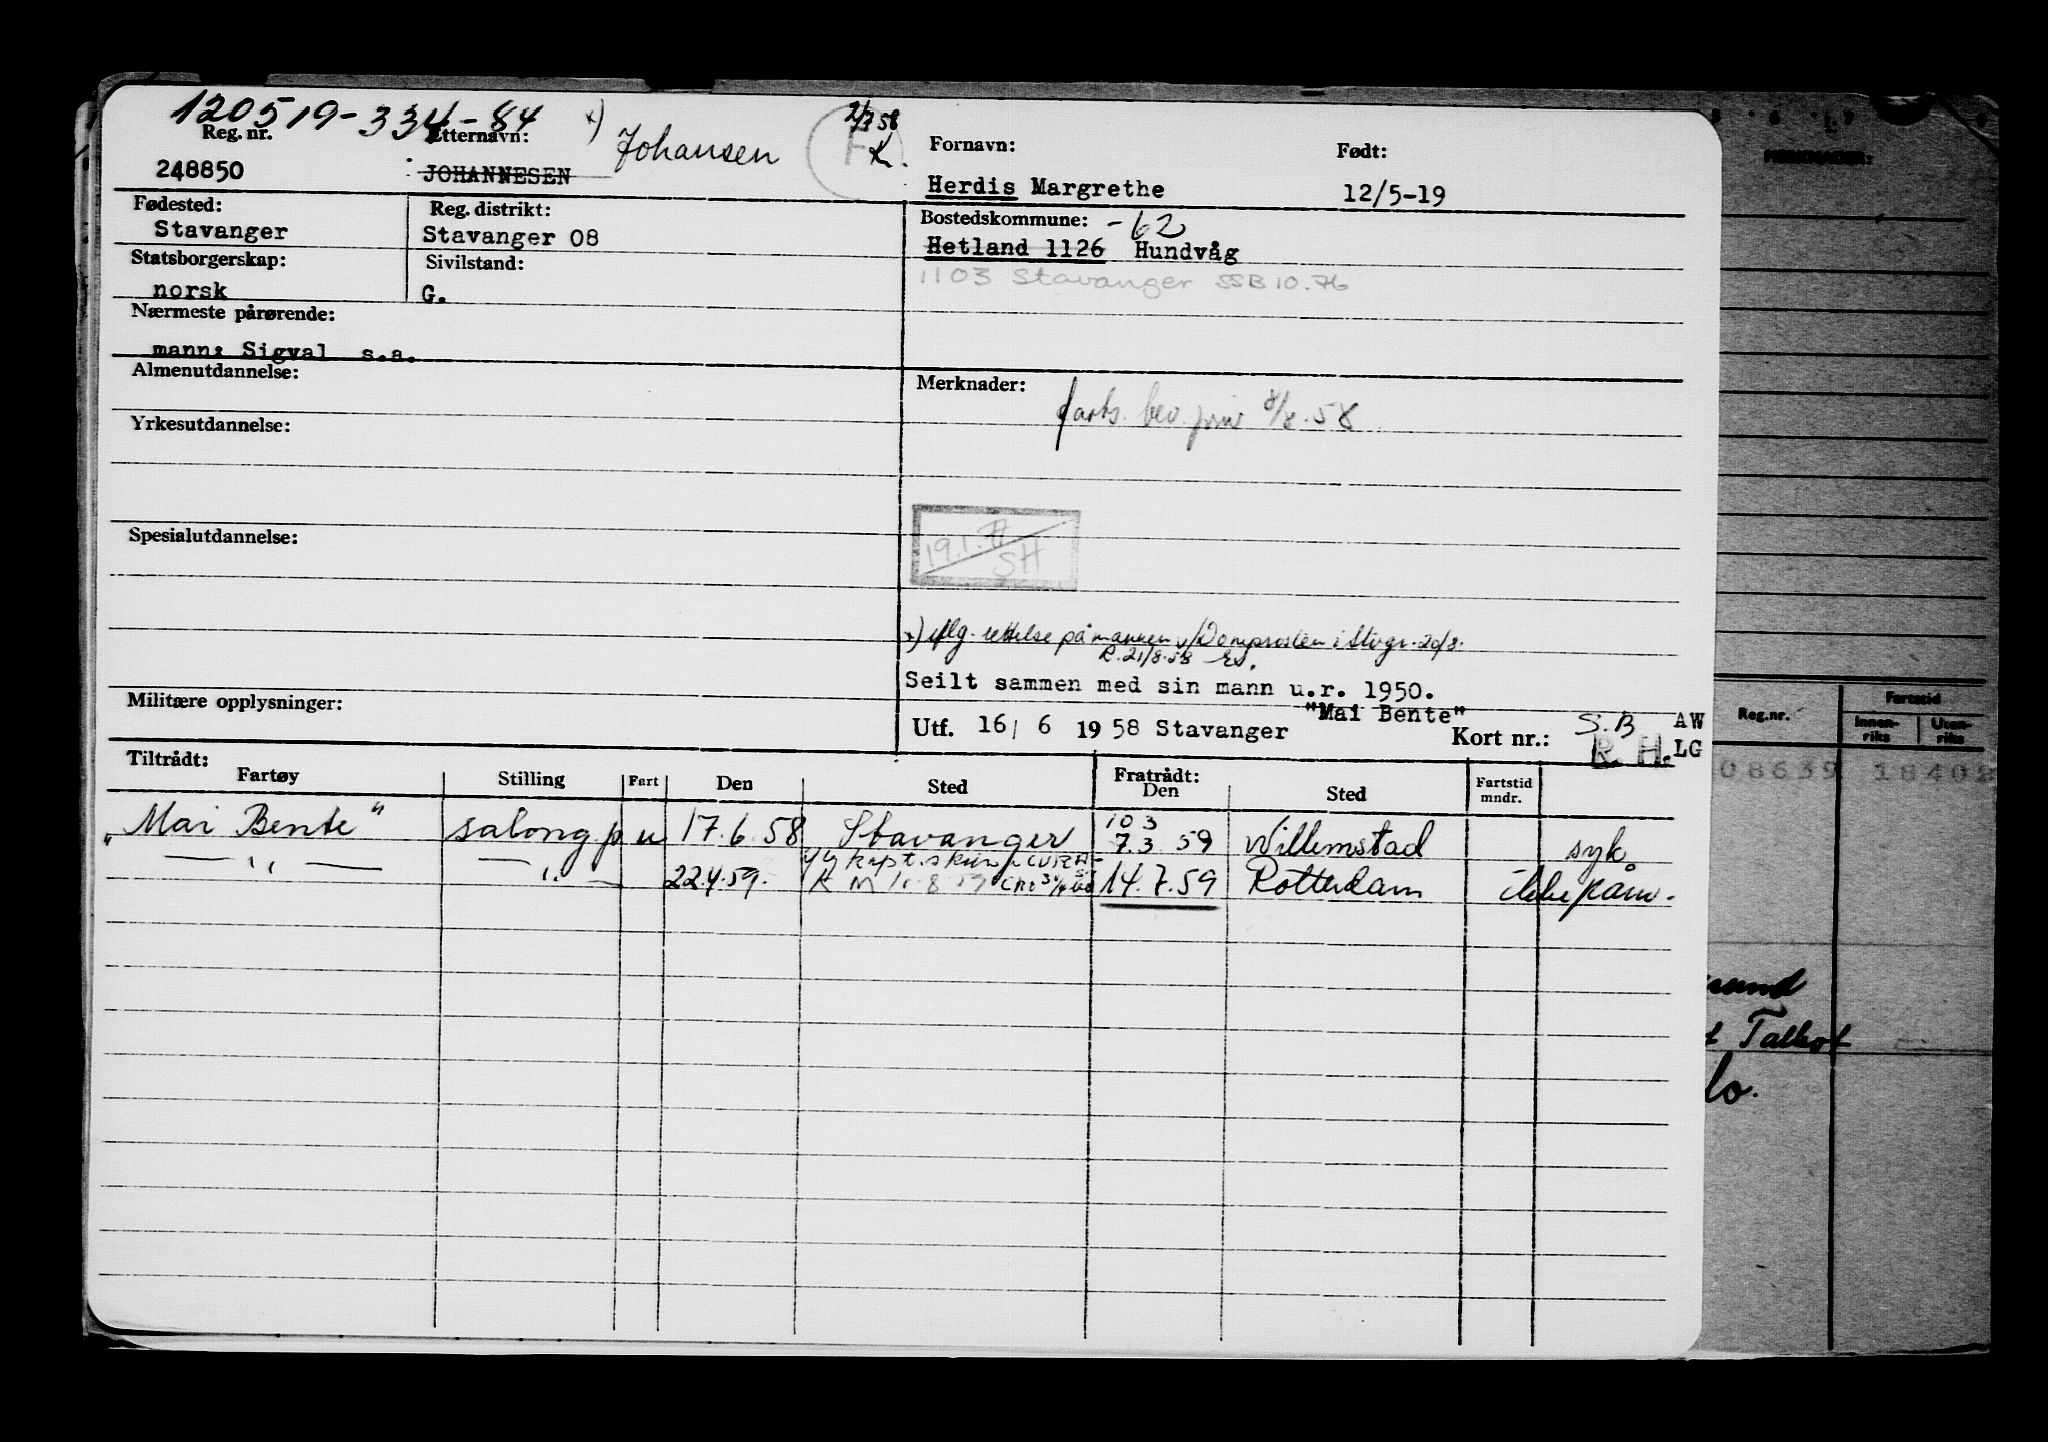 120519-334-84
Reg. nr.
248850
Etternavn:
JOHANNESEN
x) Johansen
F
Fornavn:
Herdis Margrethe
Født:
12/5-19
Fødested:
Stavanger
Reg. distrikt:
Stavanger 08
Bostedskommune: -62
Hetland 1126 Hundvåg
1103 Stavanger SSB 10.76
Statsborgerskap:
norsk
Sivilstand:
G.
Nærmeste pårørende:
mann: Sigval s.a.
Almenutdannelse:
Merknader:
farts. bev. 58
Yrkesutdannelse:
Spesialutdannelse:
19.1.77
SH
x) iflg. rettelse på mannen v/Domprosten i Stvgr. 20/8.
R. 21/8.58
Seilt sammen med sin mann u.r. 1950.
"Mai Bente"
Militære opplysninger:
Utf. 16/ 6 1958 Stavanger
Kort nr.:
S.B AW
R. H. LG
Tiltrådt:
Fartøy Stilling Fart Den Sted
Fratrådt:
Den Sted Fartstid mndr.
"Mai Bente" salong p. u 17.6.58 Stavanger 7.3 59 Willemstad syk.
103
— " — — " — 22.4.59. 14.7.59 Rotterdam
MERKNADER:
Reg.nr.
Fartstid
Innen-riks
Uten-riks
08639 18402
Talbot
lo.